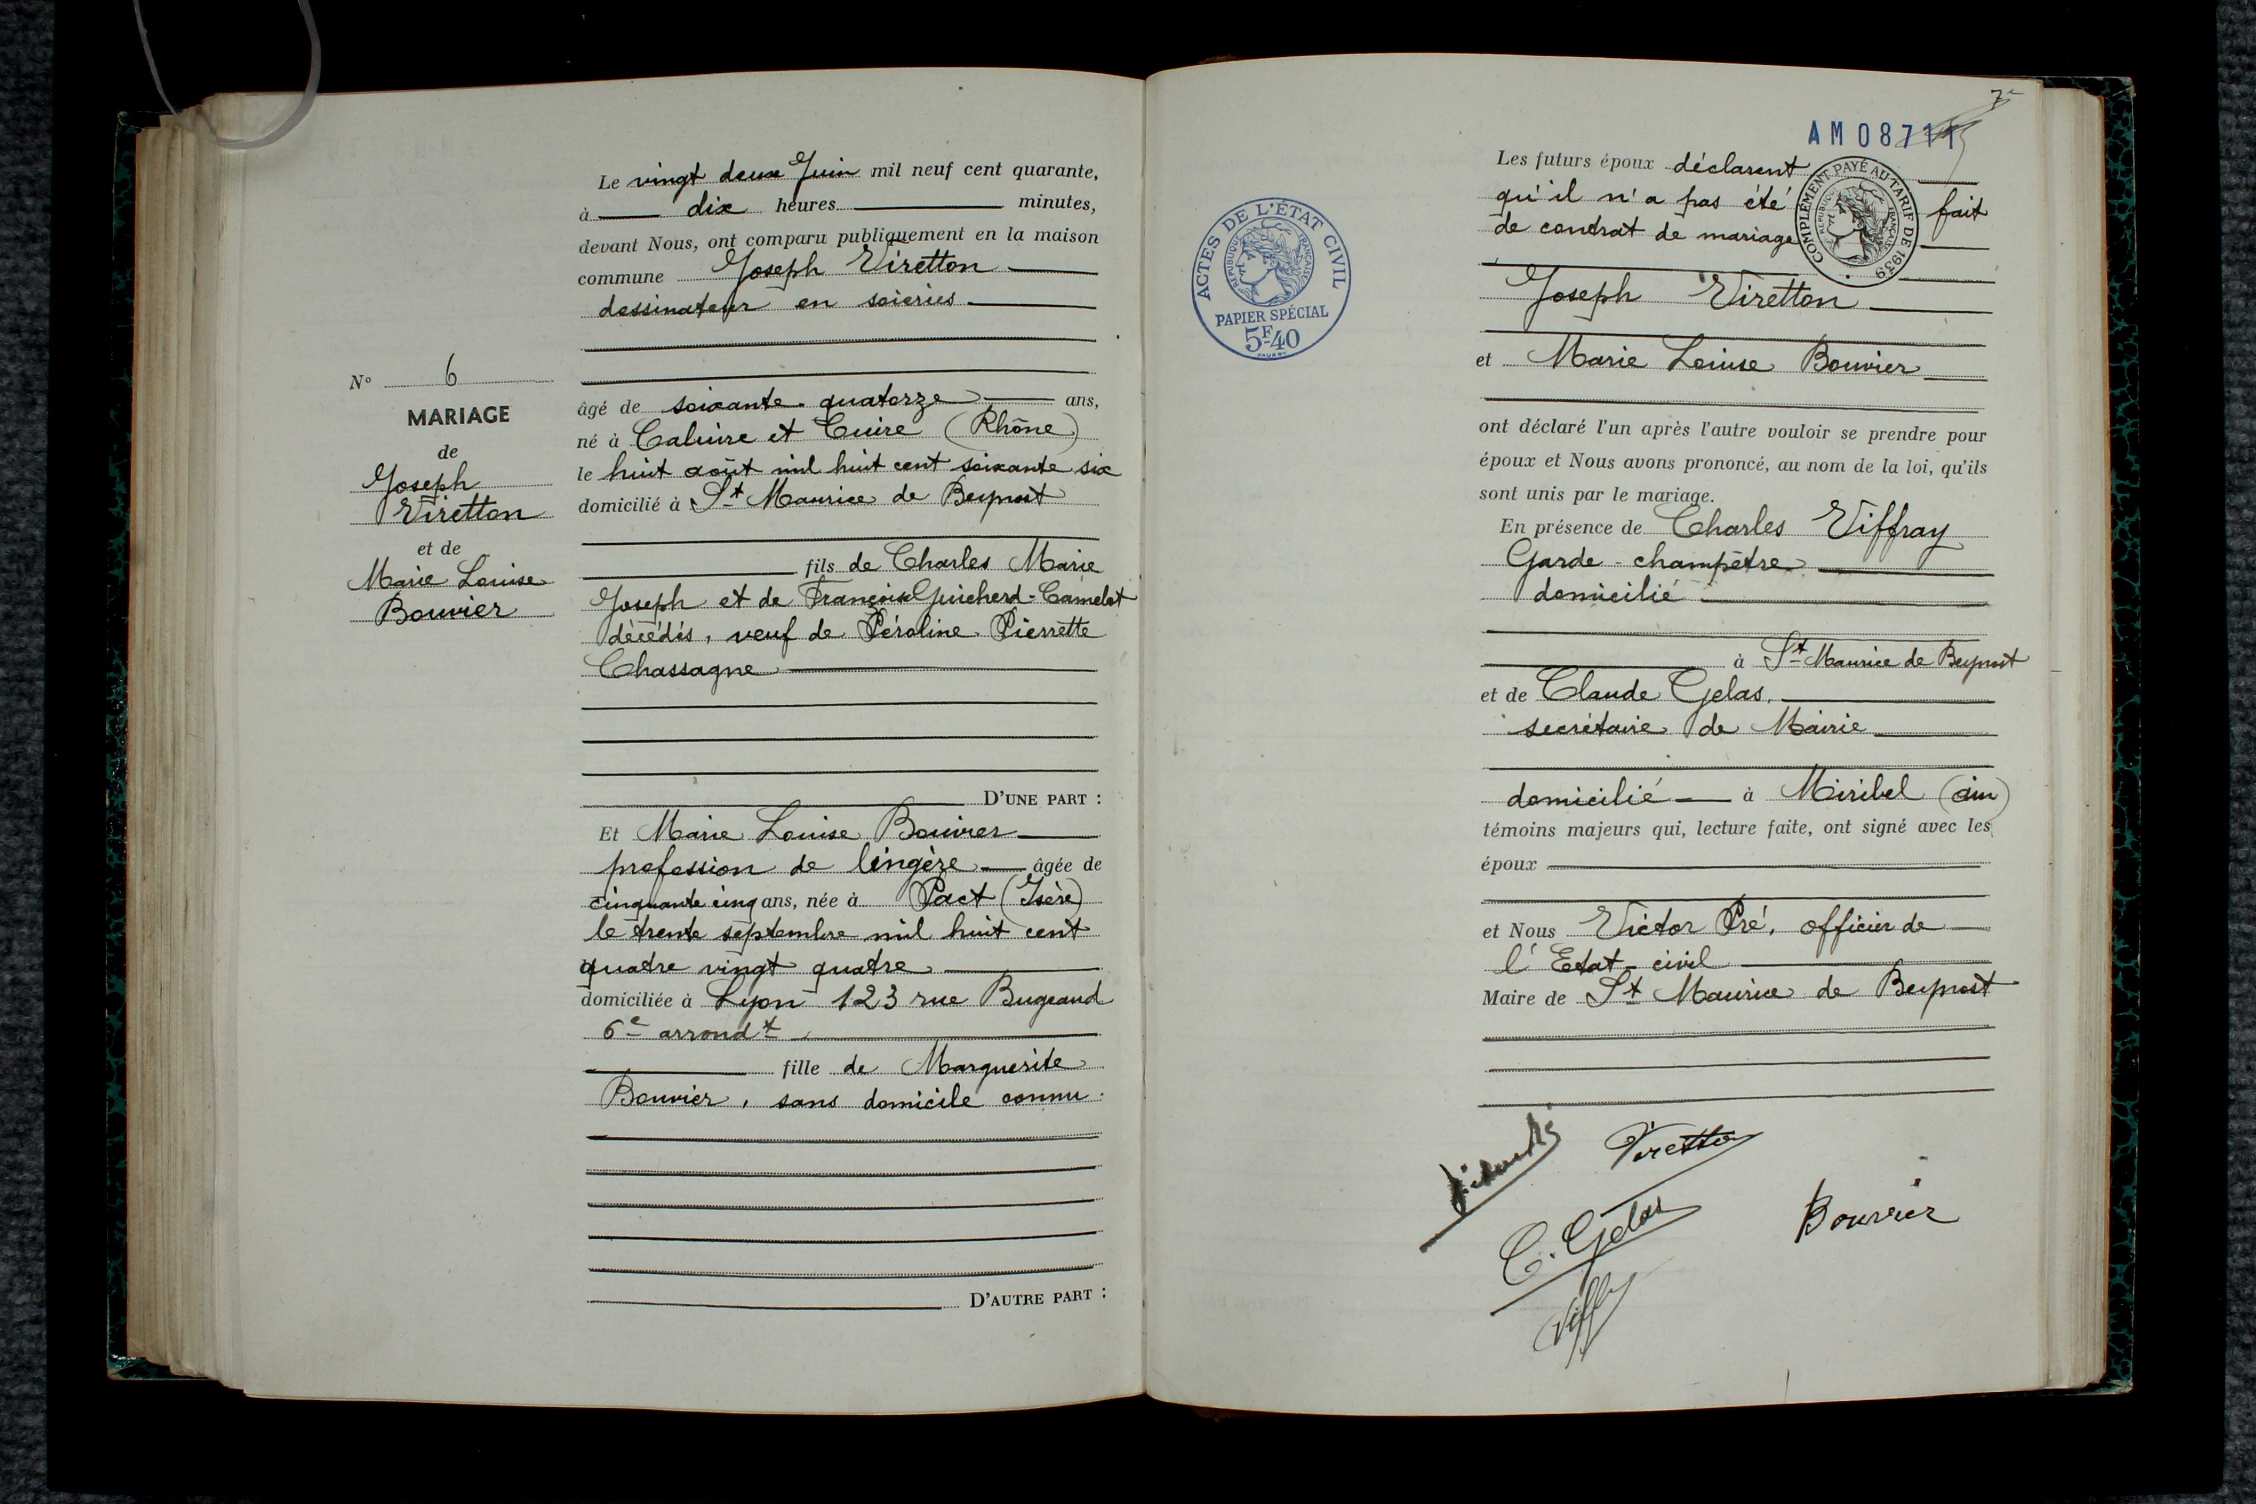 Le vingt deux Juin mil neuf cent quarante,
à dix heures minutes,
devant Nous, ont comparu publiquement en la maison
commune Joseph Viretton
dessinateur en soieries
N° 6
MARIAGE
de
Joseph
Viretton
et de
Marie Louise
Bouvier
âgé de soixante quatorze ans,
né à Caluire et Cuire (Rhône)
le huit août mil huit cent soixante six
domicilié à St Maurice de Beynost
fils de Charles Marie
Joseph et de Françoise Guicherd-Camelot
décédés, veuf de Péroline Pierrette
Chassagne
D'UNE PART :
Et Marie Louise Bouvier
profession de lingère âgée de
cinquante cinq ans, née à Pact (Isère)
le trente septembre mil huit cent
quatre vingt quatre
domiciliée à Lyon 123 rue Bugeaud
6e arrondt
fille de Marguerite
Bouvier, sans domicile connu.
D'AUTRE PART :
ACTES DE L'ÉTAT CIVIL
RÉPUBLIQUE FRANÇAISE
PAPIER SPÉCIAL
5F40
7
AM08711
COMPLÉMENT PAYÉ AU TARIF DE 1939
RÉPUBLIQUE FRANÇAISE
Les futurs époux déclarent
qu'il n'a pas été fait
de contrat de mariage
Joseph Viretton
et Marie Louise Bouvier
ont déclaré l'un après l'autre vouloir se prendre pour
époux et Nous avons prononcé, au nom de la loi, qu'ils
sont unis par le mariage.
En présence de Charles Viffray
Garde-champêtre
domicilié
à St Maurice de Beynost
et de Claude Gelas,
secrétaire de Mairie
domicilié à Miribel (ain)
témoins majeurs qui, lecture faite, ont signé avec les
époux
et Nous Victor Pré, officier de
l'Etat-civil
Maire de St Maurice de Beynost
Viretton
C. Gelas
Bouvier